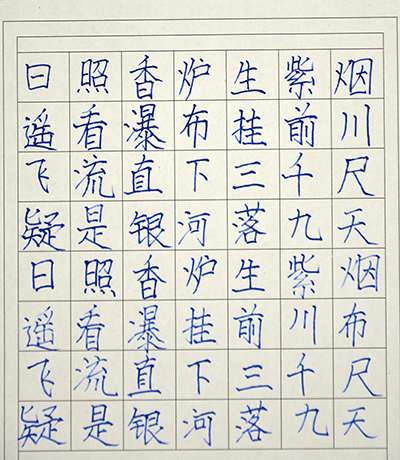 日照香炉生紫烟
遥看瀑布挂前川
飞流直下三千尺
疑是银河落九天
日照香炉生紫烟
遥看瀑挂前川布
飞流直下三千尺
疑是银河落九天